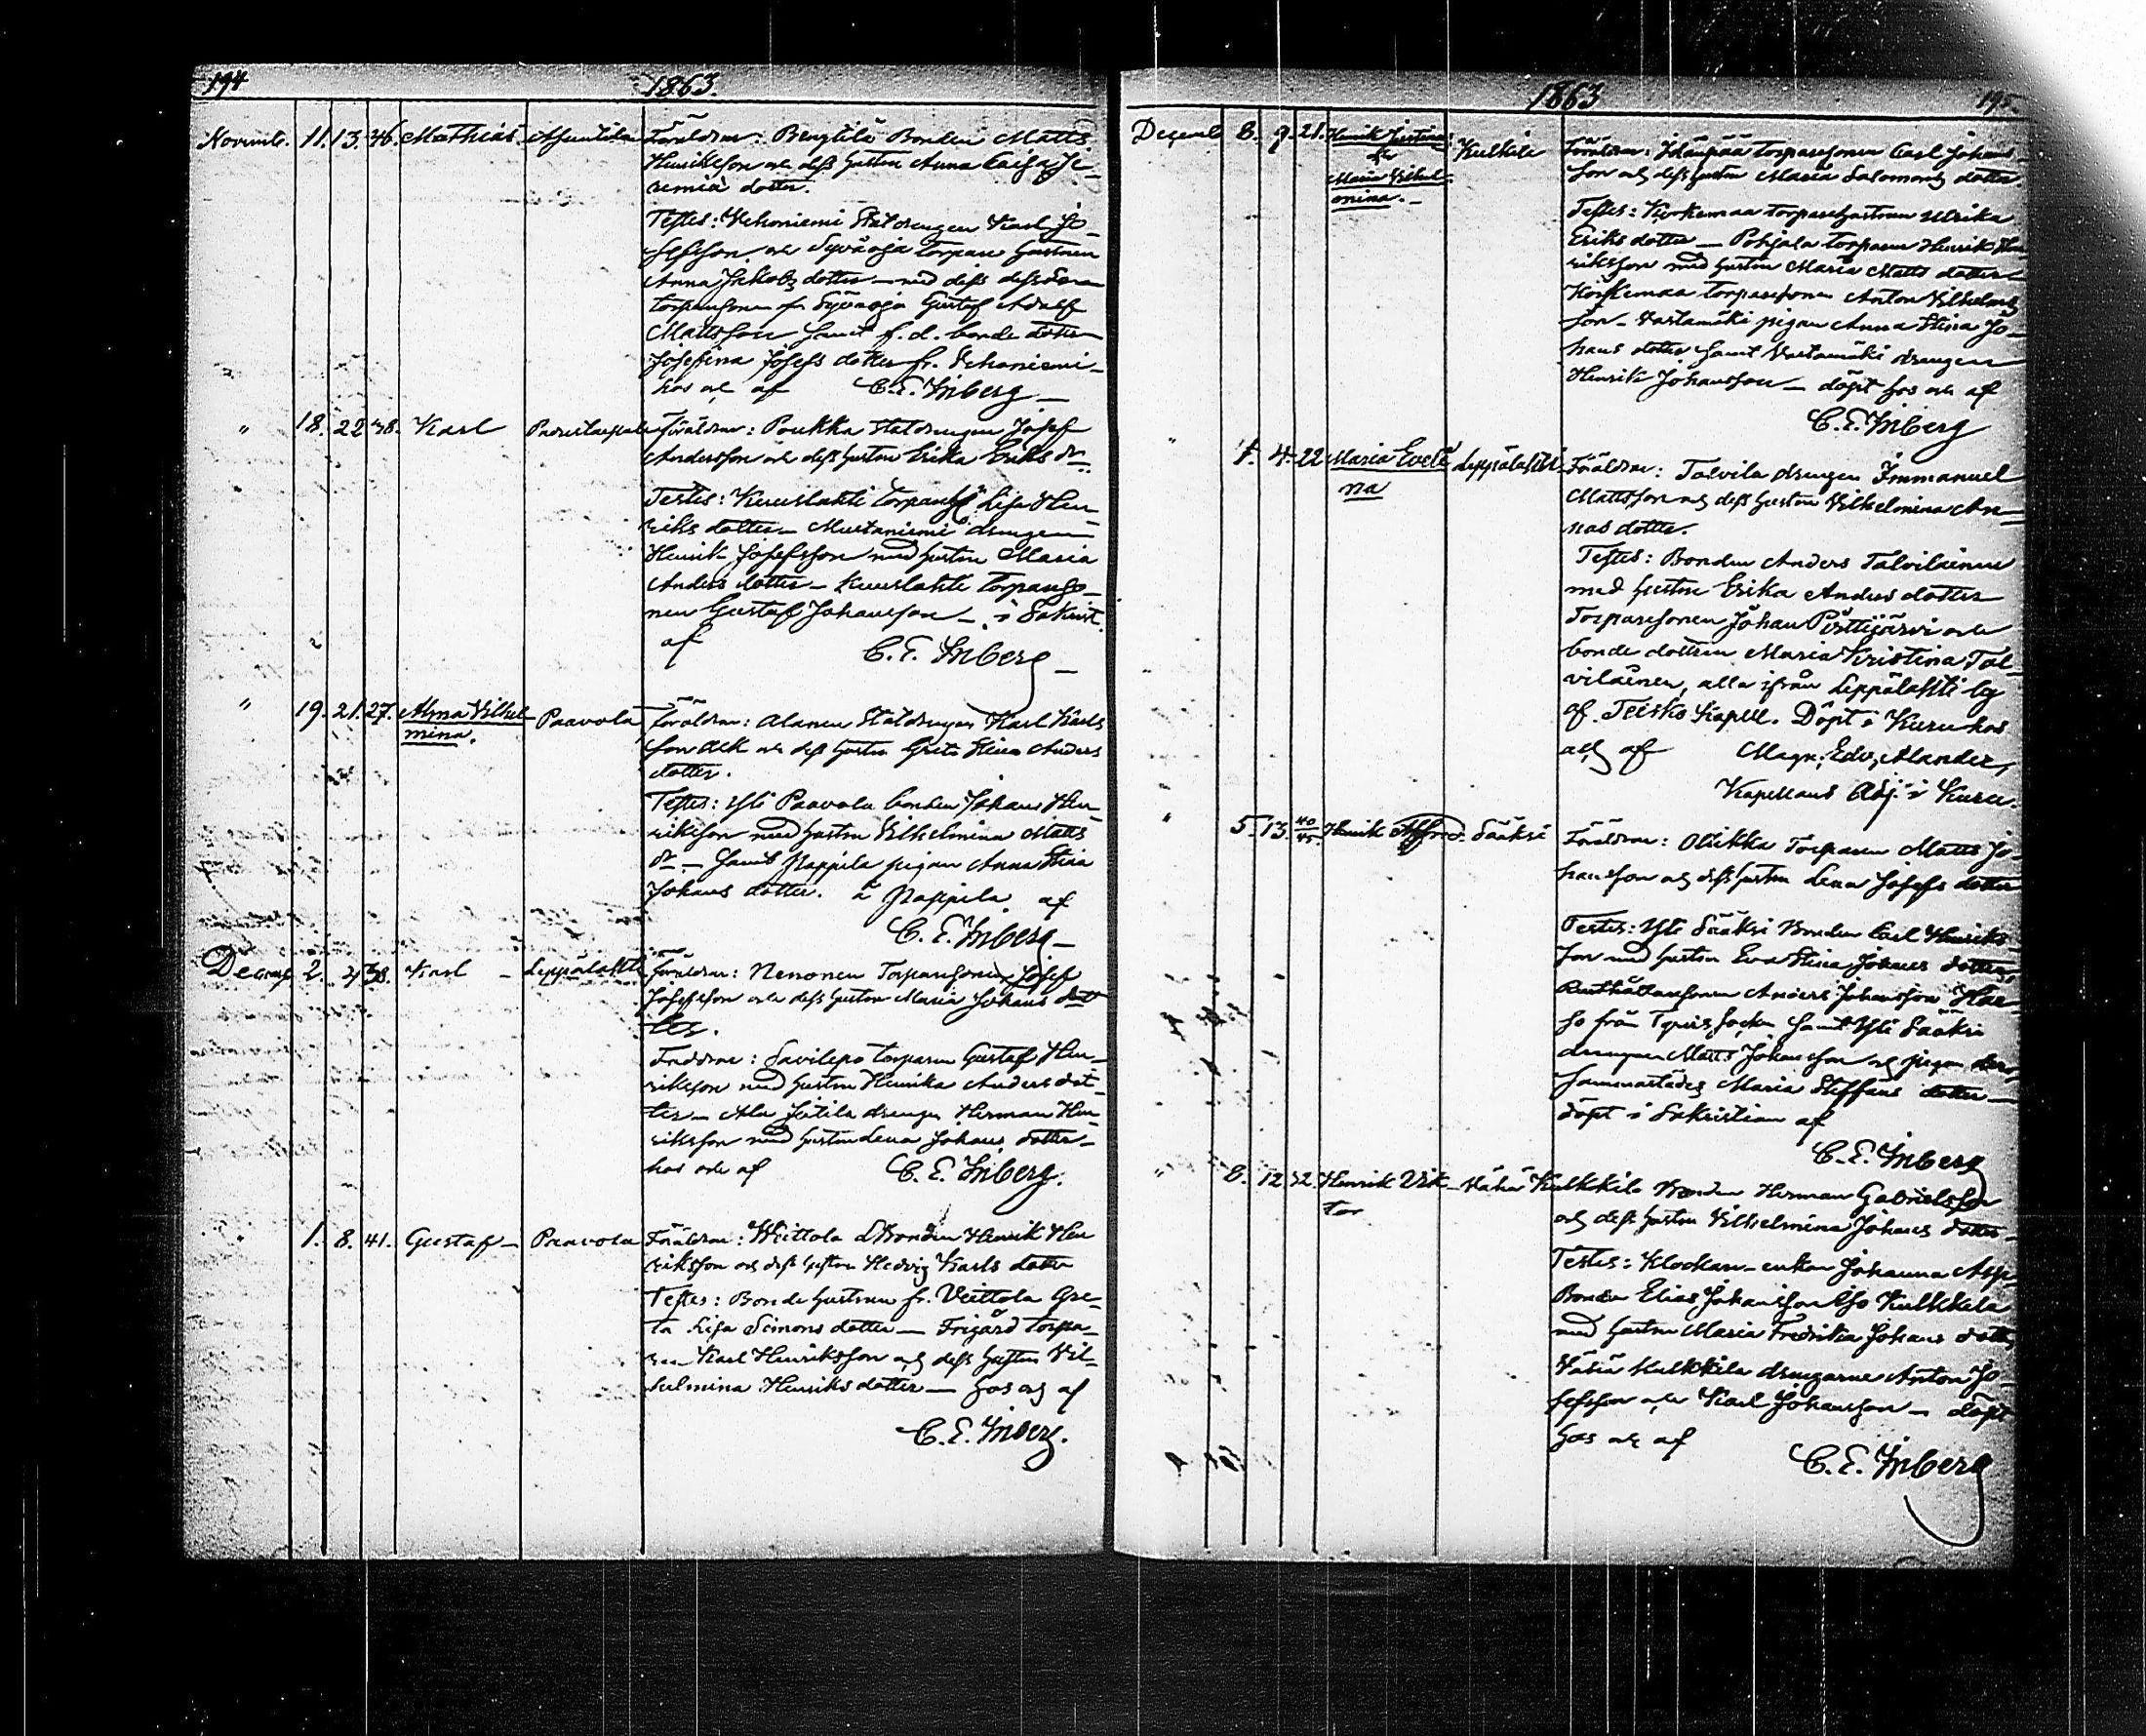 194
1863.
Novemb. 11. 13. 46. Mathias. Föräldrar: Bengtilä Bonden Matts
Henriksson och dess hustru Anna Caisa Je-
remiä dotter.
Testes: Vehoniemi Staldrengen Karl Jo-
sefsson och Syväoja torpare hustrun
Anna Jakobs dotter — med dess
torparesonen fr. Syväoja Gustaf Adolf
Mattsson samt f. d. bonde dotter
Josefina Josefs dotter fr. Vehoniemi —
hos och af C. E. Inberg —
" 18. 22. 38. Karl Föräldrar: Poukka Staldrengen Josef
Andersson och dess hustru Erika Eriks dr.
Testes: Kuuslahti Lisa Hen-
riks dotter — Mustaniemi drengen
Henrik Josefsson med hustru Maria
Anders dotter — Kuuslahti torpareso-
nen Gustaf Johansson — i Sakrist.
af C. E. Inberg —
" 19. 21. 27. Alma Vilhel- Paavola Föräldrar: Alanen Staldrengen Karl Karls
mina. son och dess hustru Greta Stina Anders
dotter.
Testes: Yli Paavola bonden Johans Hen-
riksson med hustru Vilhelmina Matts
dr — samt Pappila pigan Anna Stina
Johans dotter. å Pappila af
C. E. Inberg —
Decemb 2. 4. 38. Karl — Leppälahti Föräldrar: Nenonen Torparesonen Josef
Josefsson och dess hustru Maria Johans dot
ter.
Faddrar: Savilepo torparen Gustaf Hen-
riksson med hustru Henrika Anders dot-
ter — Ala Jätilä drengen Herman Hen-
riksson med hustru Lena Johans dotter —
hos och af C. E. Inberg.
" 1. 8. 41. Gustaf — Paavola Föräldrar: Weittola Bonden Henrik Hen
riksson och dess hustru Hedvig Karls dotter
Testes: Bonde hustrun fr. Veittola Gre-
ta Lisa Simons dotter — Frigård torpa-
ren Karl Henriksson och dess hustru Vil-
helmina Henriks dotter — hos och af
C. E. Inberg.
1863
195
Decemb 8. 9. 28. Kulkkila Föräldrar: torparesonen Carl Johans-
Maria Vilhel- son och dess hustru Maria Salomons dotter.
mina. —
Testes: torparehustrun Ulrika
Eriks dotter — Pohjala torparen Henrik Hen-
riksson med hustru Maria Matts dotter —
torparesonen Anton Vilhelms
son — Vastamäki pigan Anna Stina Jo-
hans dotter samt Vastamäki drengen
Henrik Johansson — döpt hos och af
C. E. Inberg
" 1. 4. 22 Maria Eveli Leppälahti Föräldrar: Talvila drengen Immanuel
na Mattsson och dess hustru Vilhelmina An-
nas dotter.
Testes: Bonden Anders Talvilainen
med hustru Erika Anders dotter
Torparesonen Johan Pösttijärvi och
bonde dottren Maria Kristina Tal-
vilainen, alla ifrån Leppälahti by
af Teisko Kapell. Döpt i Kuru hos
och af Magn. Edv. Alander,
Kapellans Adj. i Kuru.
" 5. 13. 40/45. Henrik Alfred. Sääksi Föräldrar: Olukka Torparen Matts Jo-
hansson och dess hustru Lena Josefs dotter
Testes: Yli Sääksi Bonden Carl Henriks-
son med hustru Eva Stina Johans dotter,
Rusthållaresonen Anders Johansson
från socken samt Yli Sääksi
drengen Matts Johansson och pigan der-
sammastädes Maria Steffans dotter —
döpt i Sakristian af
C. E. Inberg
" 8. 12. 32. Henrik Vik- Vähä Kulkkila Bonden Herman Gabrielsson
tor och dess hustru Vilhelmina Johans dotter —
Testes: Klockare-enkan Johanna Asp,
Bonden Elias Johansson Iso Kulkkila
med hustru Maria Fredrika Johans dotter,
Vähä Kulkkila drengarne Anton Jo-
sefsson och Karl Johansson — döpt
hos och af
C. E. Inberg